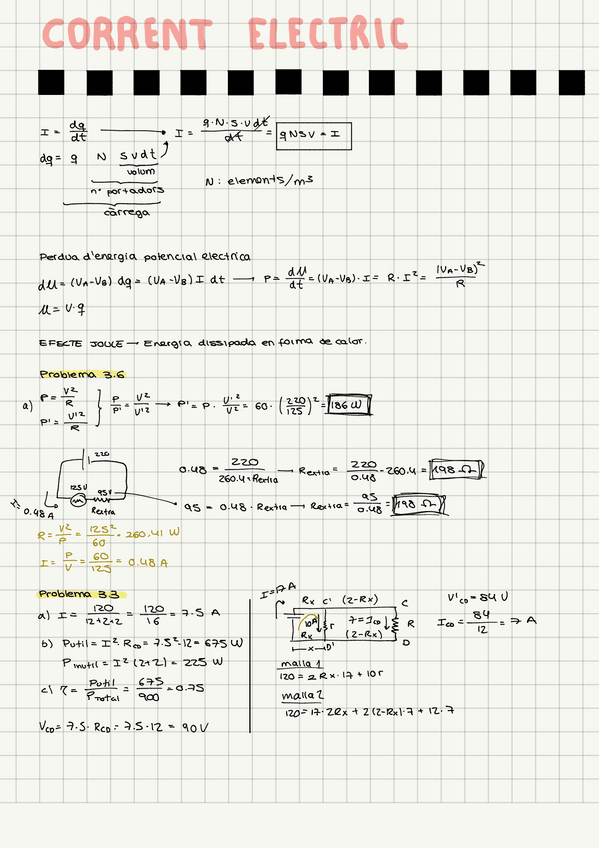 CORRENT ELECTRIC
I = dq/dt → I = q·N·S·v dt/dt = qNSv = I
dq = q N S v dt
volum
nº portadors
càrrega
N: elements/m3
Perdua d'energia potencial electrica
dU = (VA-VB) dq = (VA-VB) I dt → P = dU/dt = (VA-VB)·I = R·I² = (VA-VB)²/R
U = V·q
EFECTE JOULE → Energia dissipada en forma de calor.
Problema 3.6
a) P = V²/R
P' = V'²/R
P/P' = V²/V'² → P' = P · V'²/V² = 60 · (220/125)² = 186 W
220
125V
95V
Rextra
I = 0.48 A
0.48 = 220/260.4+Rextra → Rextra = 220/0.48 - 260.4 = 198 Ω
95 = 0.48 · Rextra → Rextra = 95/0.48 = 198 Ω
R = V²/P = 125²/60 = 260.41 W
I = P/V = 60/125 = 0.48 A
Problema 3.3
a) I = 120/12+2+2 = 120/16 = 7.5 A
b) Putil = I² RCD = 7.5²·12 = 675 W
Pinutil = I² (2+2) = 225 W
c) η = Putil/Ptotal = 675/900 = 0.75
VCD = 7.5 · RCD = 7.5·12 = 90V
I = 17 A
Rx C' (2-Rx) C
10A r 7 = ICD R
Rx (2-Rx)
x D' D
malla 1
120 = 2Rx · 17 + 10r
malla 2
120 = 17·2Rx + 2(2-Rx)·7 + 12·7
V'CD = 84 V
ICD = 84/12 = 7 A